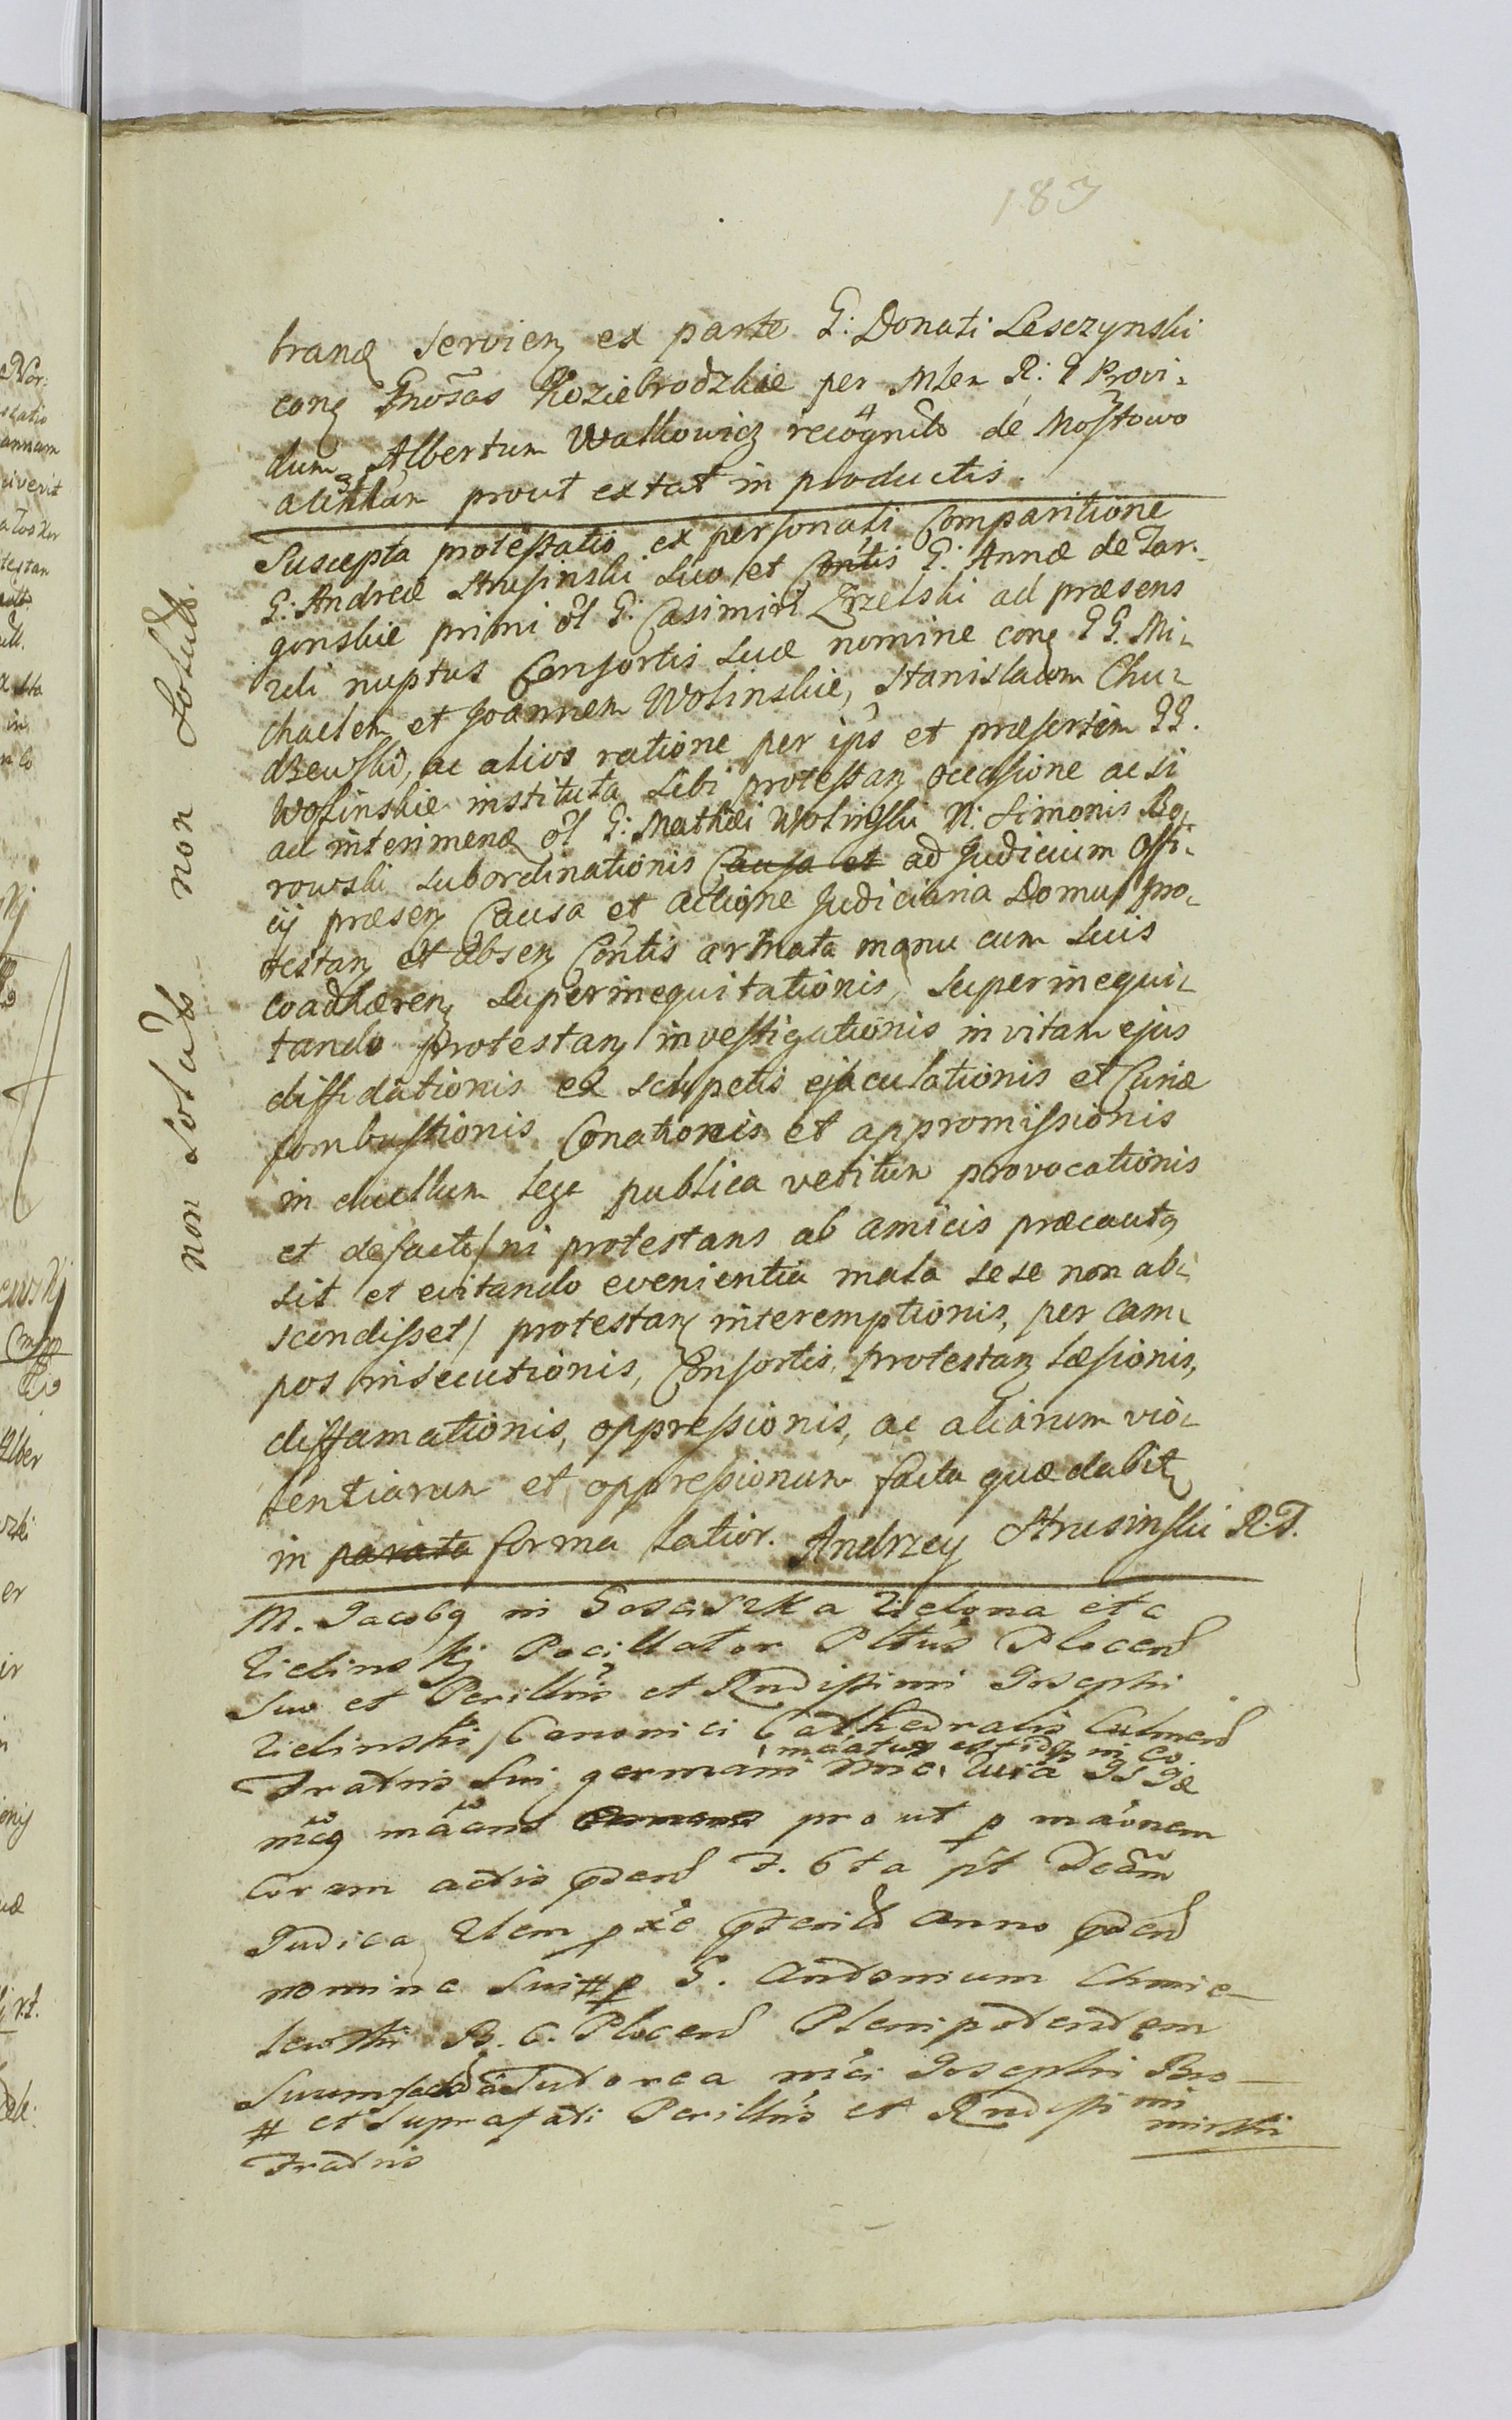 183
brand servien ex parte G: Donati Lesczynski
con Gnosas Koziebrodzkie per Mlem R: P Provi-
dum Albertum Walkowicz recognito de Mostowo
prout extat in productis.
Suscepta protestatio ex personali Comparitione
G: Andreæ Strusinski suo et Contis G: Annæ de Zar-
gonskie primi ol G: Casimiri Zrzelski ad præsens
nuptus Consortis suæ nomine con GG. Mi-
chaelem et Joannem Wolinskie, Stanislaum Chu-
dzewski, ac alios ratione per ips et præsertim GG.
Wolinskie instituta sibi protestan occasione acsi
ad interimend ol G: Mathæi Wolinski N: Simonis Bo-
rowski subordinationis Causa et ad Judicium Offi-
cij præsen Causa et actione Judiciaria Domus pro-
testan et absen Contis armata manu cum suis
coadhæren superinequitationis, superinequi-
tando protestan investigationis in vitam ejus
diffidationis ex sclopetis ejaculationis et Curiæ
combustionis Conationis et appromissionis
in duellum lege publica vetitum provocationis
et defacti/ni protestans ab amicis præcaut
sit et evitando evenientia mala sese non abs-
scondisset/ protestan interemptionis, per cam-
pos insecutionis, Consortis protestan læsionis,
diffamationis, oppressionis, ac aliarum vio-
lentiarum et oppressionum facta quæ dabit
in parata forma latior. Andrzey Strusinski R.T.
M. Jacob in Gosciszka Zielona etc
Zielinskj Pocillator Pltus Plocen
suo et Perillris et Rndissimi Josephi
Zielinski Canonici Cathedralis Culmen
Fratris sui germani
prout p maonem
Coram actis pden F. 6ta pt Dcam
Judica
nomine sui # p G. Antonium Chmie-
lewski B. C. Plocen Plenipotentem
Suum Josephi Bro-
miski
# et suprafati Perillris et Rndissimi
Fratris
non solut non solut.